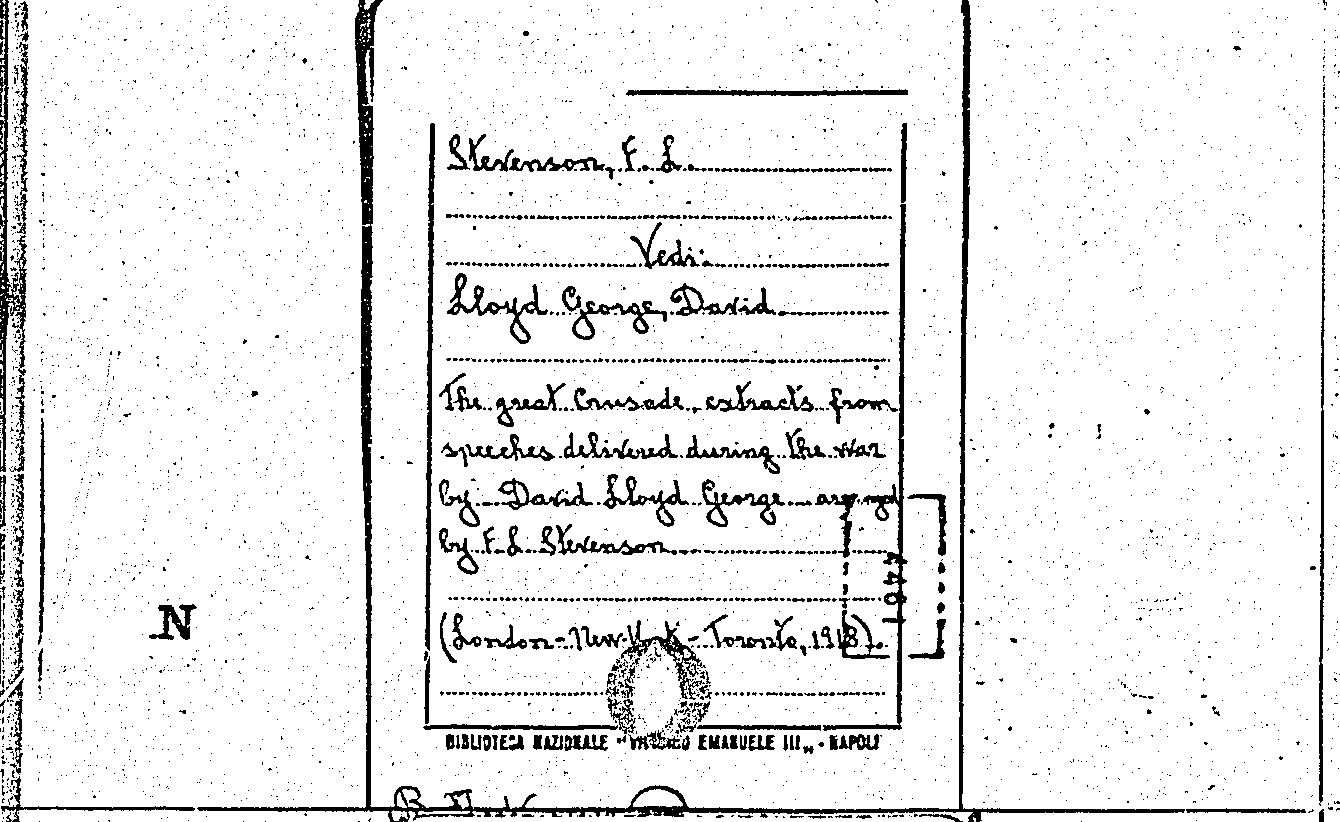 Stevenson, F. L.
Vedi:
Lloyd George, David
The great Crusade, extracts from
speeches delivered during the war
by David Lloyd George
by F. L. Stevenson
(London - New-York - Toronto, 1918).
N
BIBLIOTECA NAZIONALE "VITTORIO EMANUELE III„ - NAPOLI